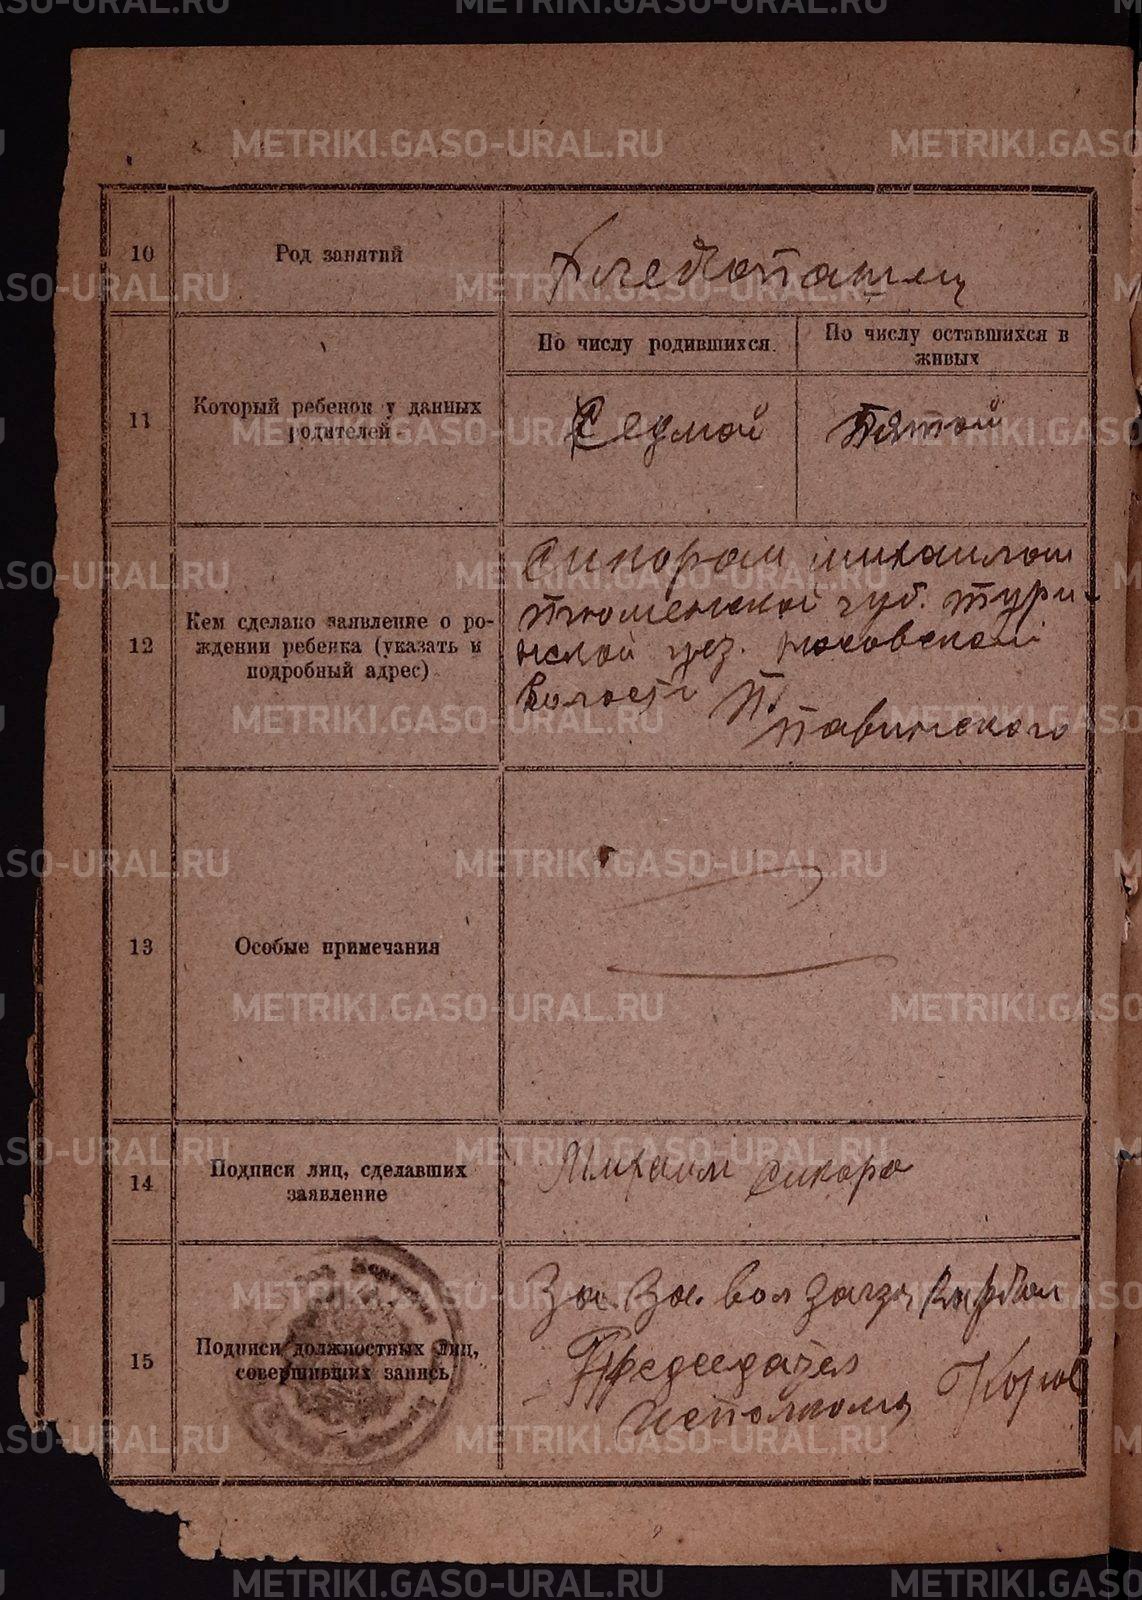 10
Род занятий
Хлебопашец
По числу родившихся.
По числу оставшихся в
живых
11
Который ребенок у данных
родителей
Седмой
Пятой
12
Кем сделано заявление о ро-
ждении ребенка (указать и
подробный адрес)
Сикорой михаилом
тюменской губ. тури-
нской уез.
Волости п.
тавинского
13
Особые примечания
14
Подписи лиц, сделавших
заявление
Михаил Сикора
15
Подписи должностных лиц,
совершивших запись
За Зав. вол
Председател
исполкома
METRIKI.GASO-URAL.RU